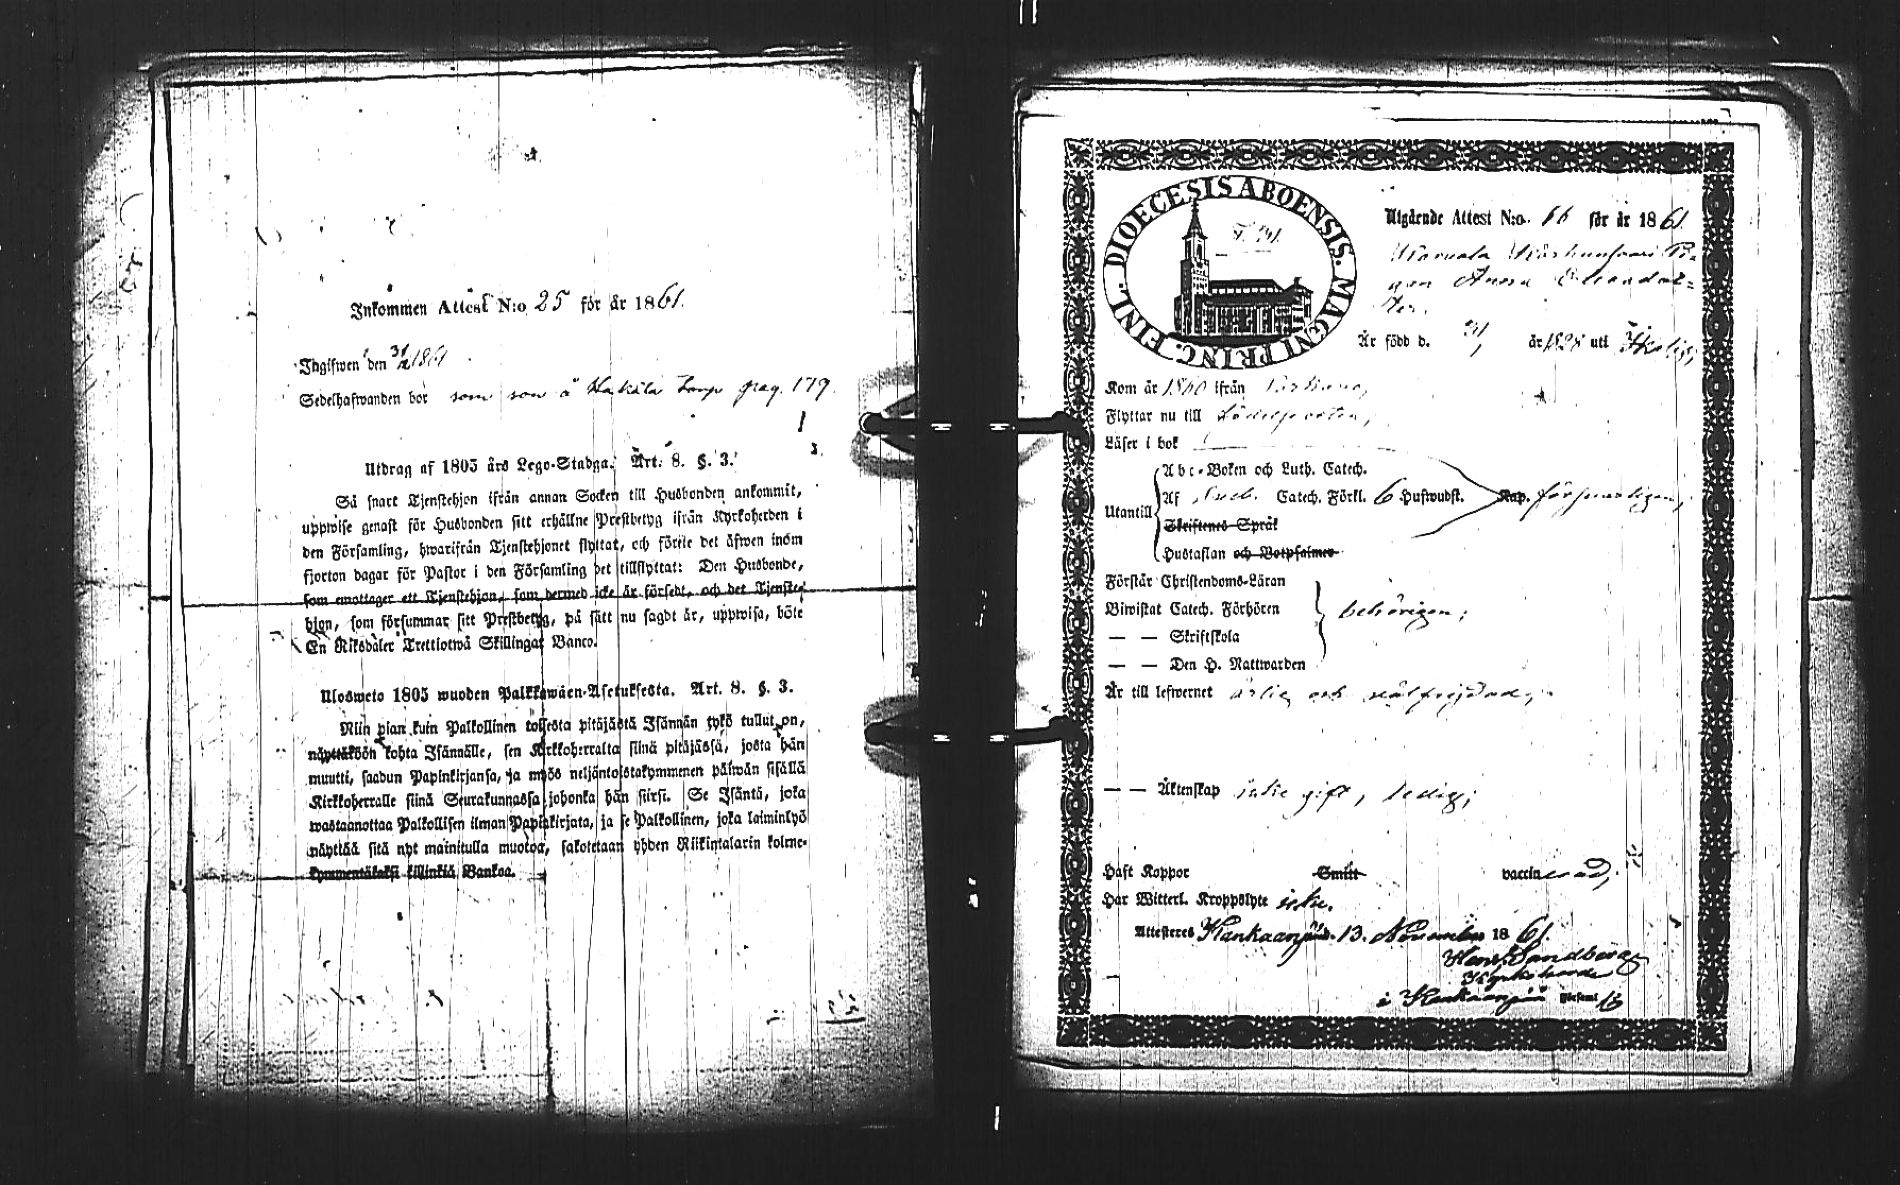 Inkommen Attest N:o 25 för år 1861.
Ingifwen den 31/12 1861
Sedelhafwanden bor som son å pag. 179.
Utdrag af 1805 års Lego-Stadga. Art. 8. §. 3.
Så snart Tjenstehjon ifrån annan Socken till Husbonden ankommit,
uppwise genast för Husbonden sitt erhållne Prestbetyg ifrån Kyrkoherden i
den Församling, hwarifrån Tjenstehjonet flyttat, och förete det äfwen inom
fjorton dagar för Pastor i den Församling det tillflyttat: Den Husbonde,
som emottager ett Tjenstehjon, som dermed icke är försedt, och det Tjenste-
hjon, som försummar sitt Prestbetyg, på sätt nu sagdt är, uppwisa, böte
En Riksdaler Trettiotwå Skillingar Banco.
Ulosweto 1805 wuoden Palkkawäen-Asetuksesta. Art. 8. §. 3.
Niin pian kuin Palkollinen toisesta pitäjästä Isännän tykö tullut on,
näyttäköön kohta Isännälle, sen Kirkkoherralta siinä pitäjässä, josta hän
muutti, saadun Papinkirjansa, ja myös neljäntoistakymmenen päiwän sisällä
Kirkkoherralle siinä Seurakunnassa johonka hän siirsi. Se Isäntä, joka
wastaanottaa Palkollisen ilman Papinkirjata, ja se Palkollinen, joka laiminlyö
näyttää sitä nyt mainitulla muotoa, sakotetaan yhden Riikintalarin kolme-
kymmentäkaksi killinkiä Bankoa.
FINL. DIOECESIS ABOENSIS. MAGNI PRINC.
Utgående Attest N:o 66 för år 1861.
Pi-
gan Anna
ter.
Är född d. 31 år 1828 uti
Kom år 1860 ifrån
Flyttar nu till
Läser i bok
Utantill
Abc-Boken och Luth. Catech.
Af Catech. Förkl. 6 Hufwudst. Kap. försvarligen,
Skriftenes Språk
Hustaflan och Botpsalmer
Förstår Christendoms-Läran
Biwistat Catech. Förhören behörigen;
— — Skriftskola
— — Den H. Nattwarden
Är till lefwernet ärlig och välfrejdad,
— — Äktenskap icke gift, ledig;
Haft Koppor Smitt vaccinerad,
Har Witterl. Kroppslyte icke.
Attesteres Kankaanpää d. 13. November 1861.
Henr. Sandberg
Kyrkoherde
i Kankaanpää Församl